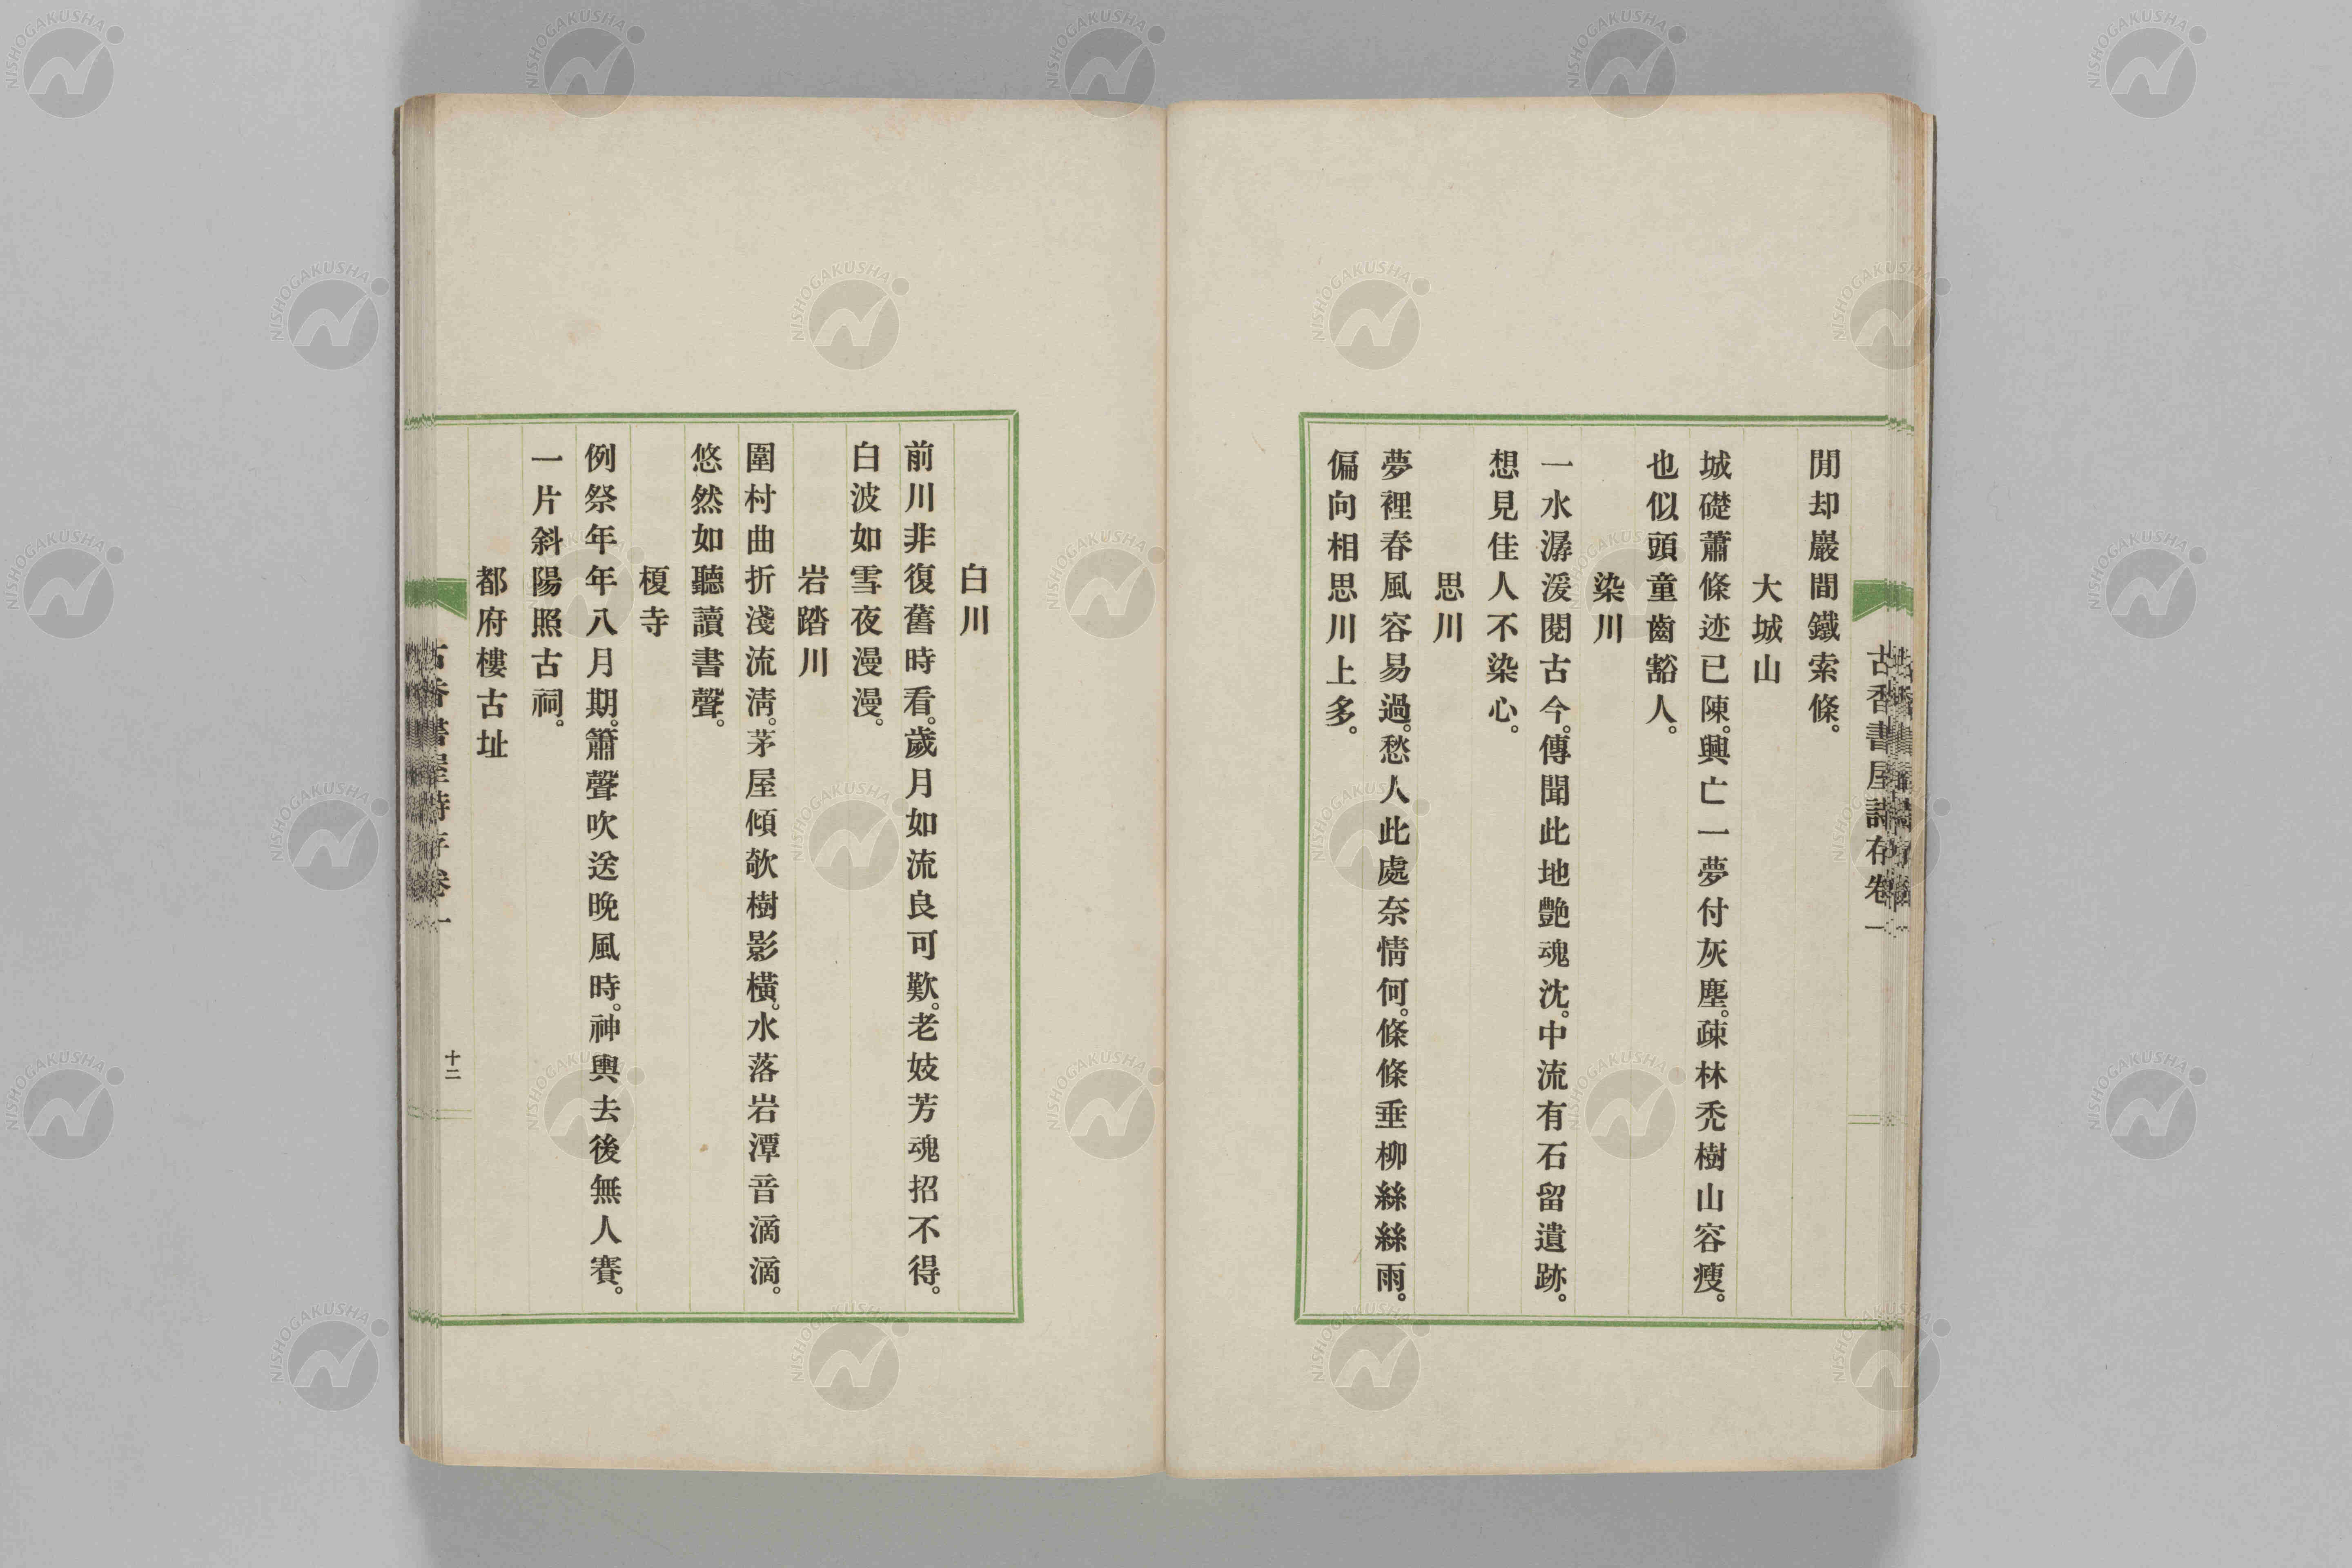 古香書屋詩存卷一
閒却巖間鐵索條。
大城山
城礎蕭條迹已陳。興亡一夢付灰塵。疎林禿樹山容瘦。
也似頭童齒豁人。
染川
一水潺湲閱古今。傳聞此地艷魂沈。中流有石留遺跡。
想見佳人不染心。
思川
夢裡春風容易過。愁人此處奈情何。條條垂柳絲絲雨。
偏向相思川上多。
白川
前川非復舊時看。歲月如流良可歎。老妓芳魂招不得。
白波如雪夜漫漫。
岩踏川
圍村曲折淺流淸。茅屋傾欹樹影橫。水落岩潭音滴滴。
悠然如聽讀書聲。
榎寺
例祭年年八月期。簫聲吹送晚風時。神輿去後無人賽。
一片斜陽照古祠。
都府樓古址
古香書屋詩存卷一
十二
NISHOGAKUSHA